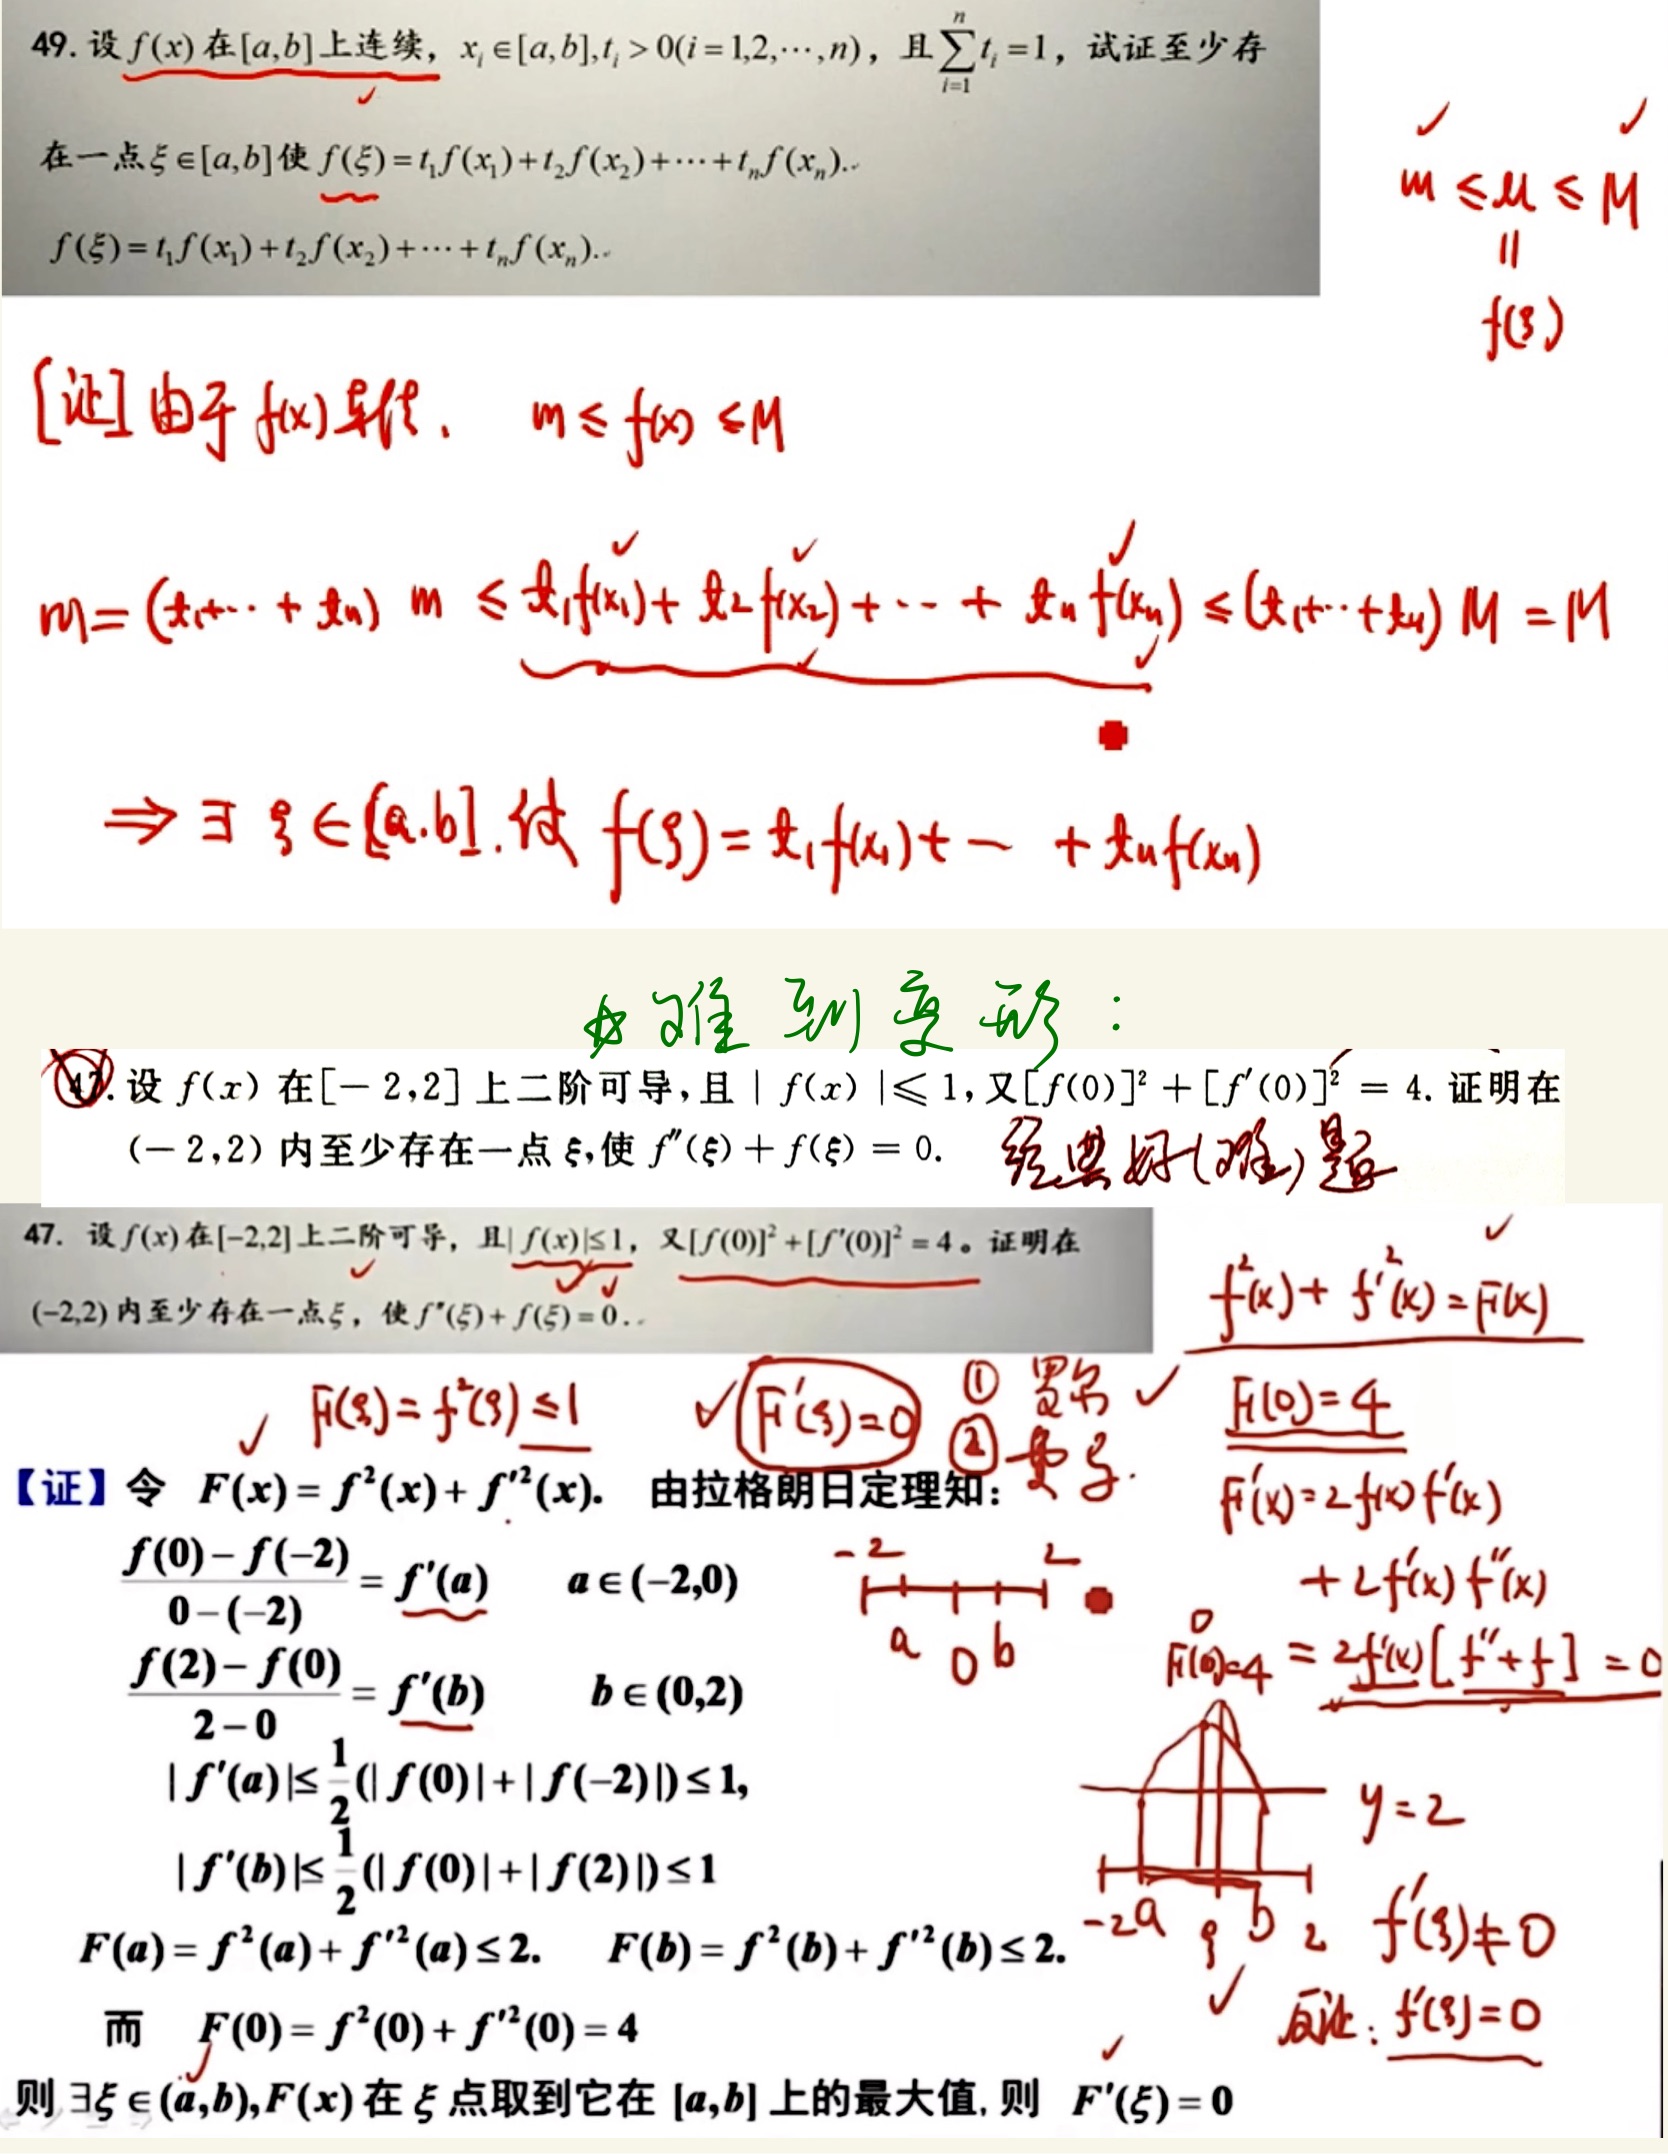 49. 设 f(x) 在[a,b]上连续，x_i∈[a,b],t_i>0(i=1,2,⋯,n)，且∑_{i=1}^{n} t_i=1，试证至少存
在一点ξ∈[a,b]使 f(ξ)=t₁f(x₁)+t₂f(x₂)+⋯+t_nf(x_n).
f(ξ)=t₁f(x₁)+t₂f(x₂)+⋯+t_nf(x_n).
m ≤ μ ≤ M
=
f(ξ)
[证] 由于 f(x) 连续. m ≤ f(x) ≤ M
m = (t₁+⋯+t_n) m ≤ t₁f(x₁)+t₂f(x₂)+⋯+t_nf(x_n) ≤ (t₁+⋯+t_n) M = M
⇒ ∃ ξ∈[a.b]. 使 f(ξ) = t₁f(x₁)+⋯+t_nf(x_n)
☆难 到 变 形:
47. 设 f(x) 在[−2,2]上二阶可导,且 | f(x) |≤ 1,又[f(0)]² + [f′(0)]² = 4. 证明在
(−2,2) 内至少存在一点 ξ,使 f″(ξ) + f(ξ) = 0.
经典好(难)题
47. 设 f(x) 在[-2,2]上二阶可导，且|f(x)|≤1，又[f(0)]²+[f′(0)]²=4。证明在
(-2,2)内至少存在一点ξ，使 f″(ξ)+f(ξ)=0.
f²(x)+f′²(x)=F(x)
F(ξ)=f²(ξ)≤1
F′(ξ)=0
① 罗尔
② 费马.
F(0)=4
F′(x)=2f(x)f′(x)
+2f′(x)f″(x)
=2f′(x)[f″+f]=0
【证】令 F(x) = f²(x) + f′²(x). 由拉格朗日定理知:
(f(0) − f(−2))/(0 − (−2)) = f′(a) a∈(−2,0)
-2 2
a 0 b
(f(2) − f(0))/(2 − 0) = f′(b) b∈(0,2)
F(0)=4
|f′(a)|≤ 1/2(|f(0)|+|f(−2)|)≤1,
y=2
|f′(b)|≤ 1/2(|f(0)|+|f(2)|)≤1
-2 a ξ b 2
F(a) = f²(a) + f′²(a) ≤ 2. F(b) = f²(b) + f′²(b) ≤ 2.
f′(ξ)≠0
而 F(0) = f²(0) + f′²(0) = 4
反证: f′(ξ)=0
则 ∃ξ∈(a,b),F(x) 在 ξ 点取到它在 [a,b] 上的最大值, 则 F′(ξ) = 0